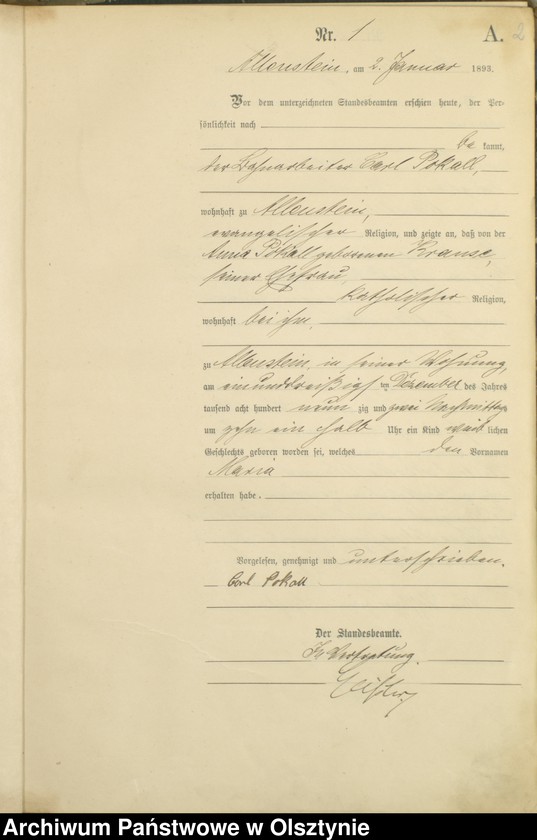 Nr. 1 A. 2
Allenstein, am 2. Januar 1893.
Vor dem unterzeichneten Standesbeamten erschien heute, der Per-
sönlichkeit nach
be kannt,
der Bahnarbeiter Carl Pokall,
wohnhaft zu Allenstein,
evangelischer Religion, und zeigte an, daß von der
Anna Pokall geborenen Krause,
seiner Ehefrau,
katholischer Religion,
wohnhaft bei ihm,
zu Allenstein, in seiner Wohnung,
am einunddreißigsten Dezember des Jahres
tausend acht hundert neun zig und zwei Nachmittags
um zehn ein halb Uhr ein Kind weib lichen
Geschlechts geboren worden sei, welches den Vornamen
Maria
erhalten habe.
Vorgelesen, genehmigt und unterschrieben.
Carl Pokall
Der Standesbeamte.
In Vertretung.
Archiwum Państwowe w Olsztynie